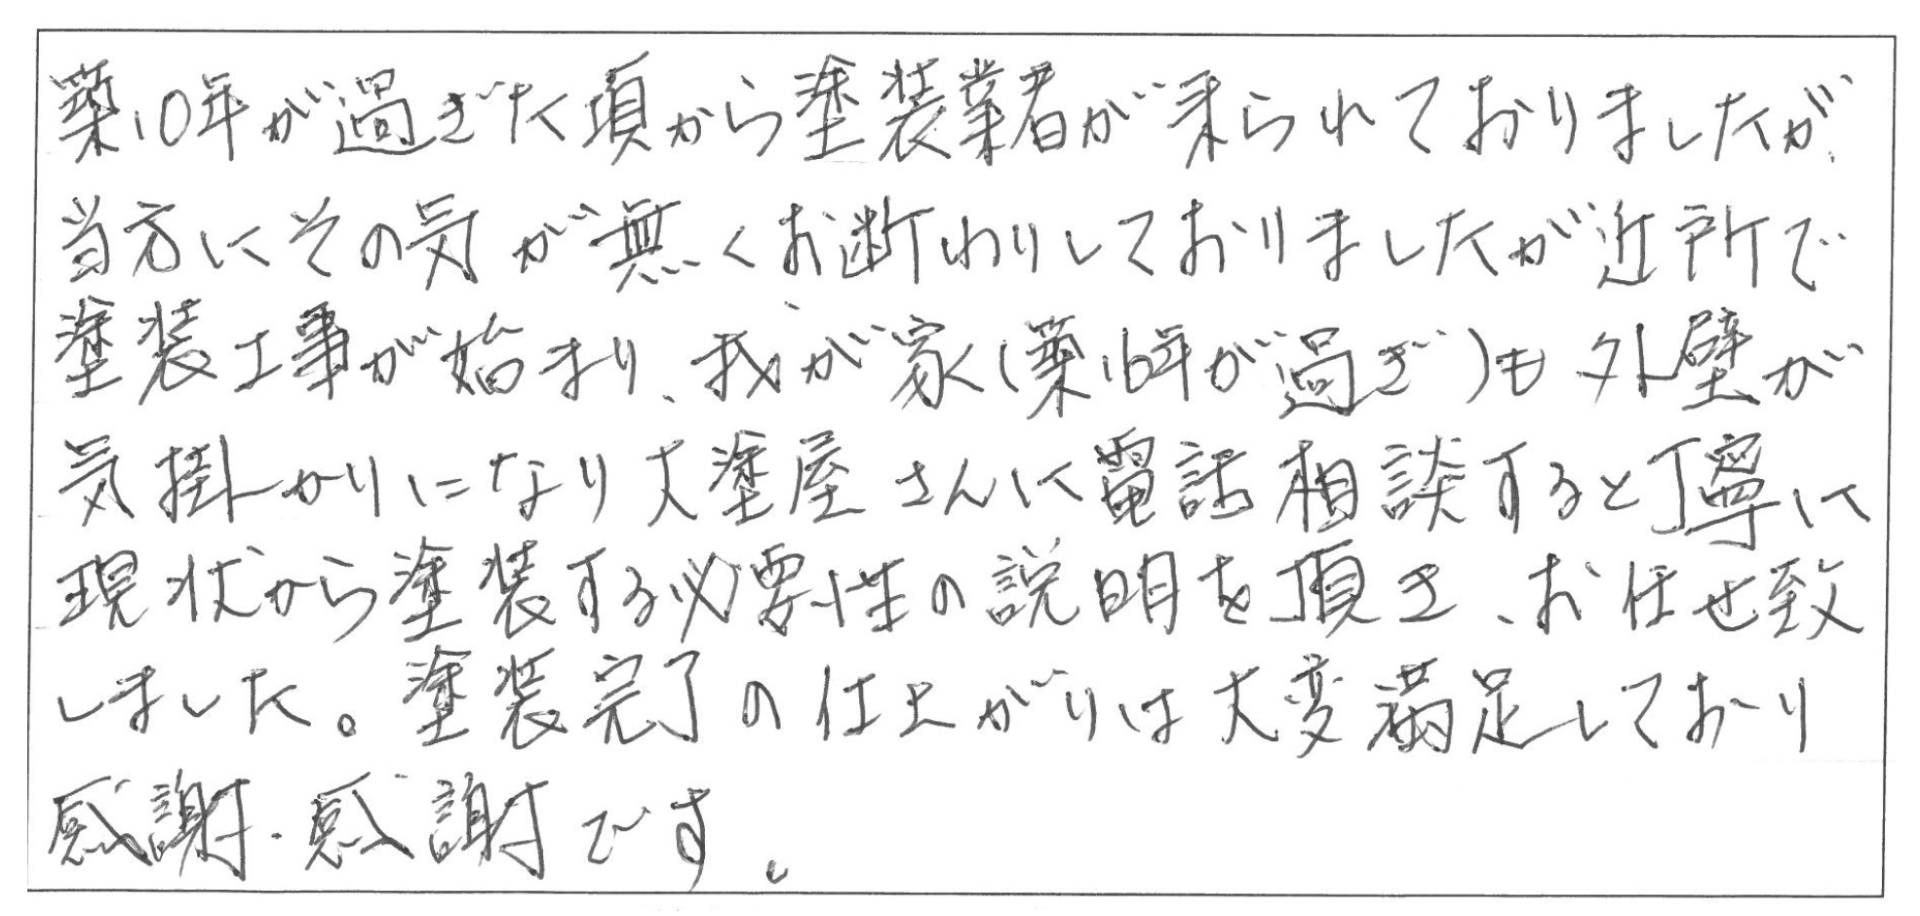 築10年が過ぎた頃から塗装業者が来られておりましたが、
当方にその気が無くお断わりしておりましたが近所で
塗装工事が始まり、我が家(築16年が過ぎ)も外壁が
気掛かりになり大塗屋さんに電話相談すると丁寧に
現状から塗装する必要性の説明を頂き、お任せ致
しました。塗装完了の仕上がりは大変満足しており
感謝・感謝です。